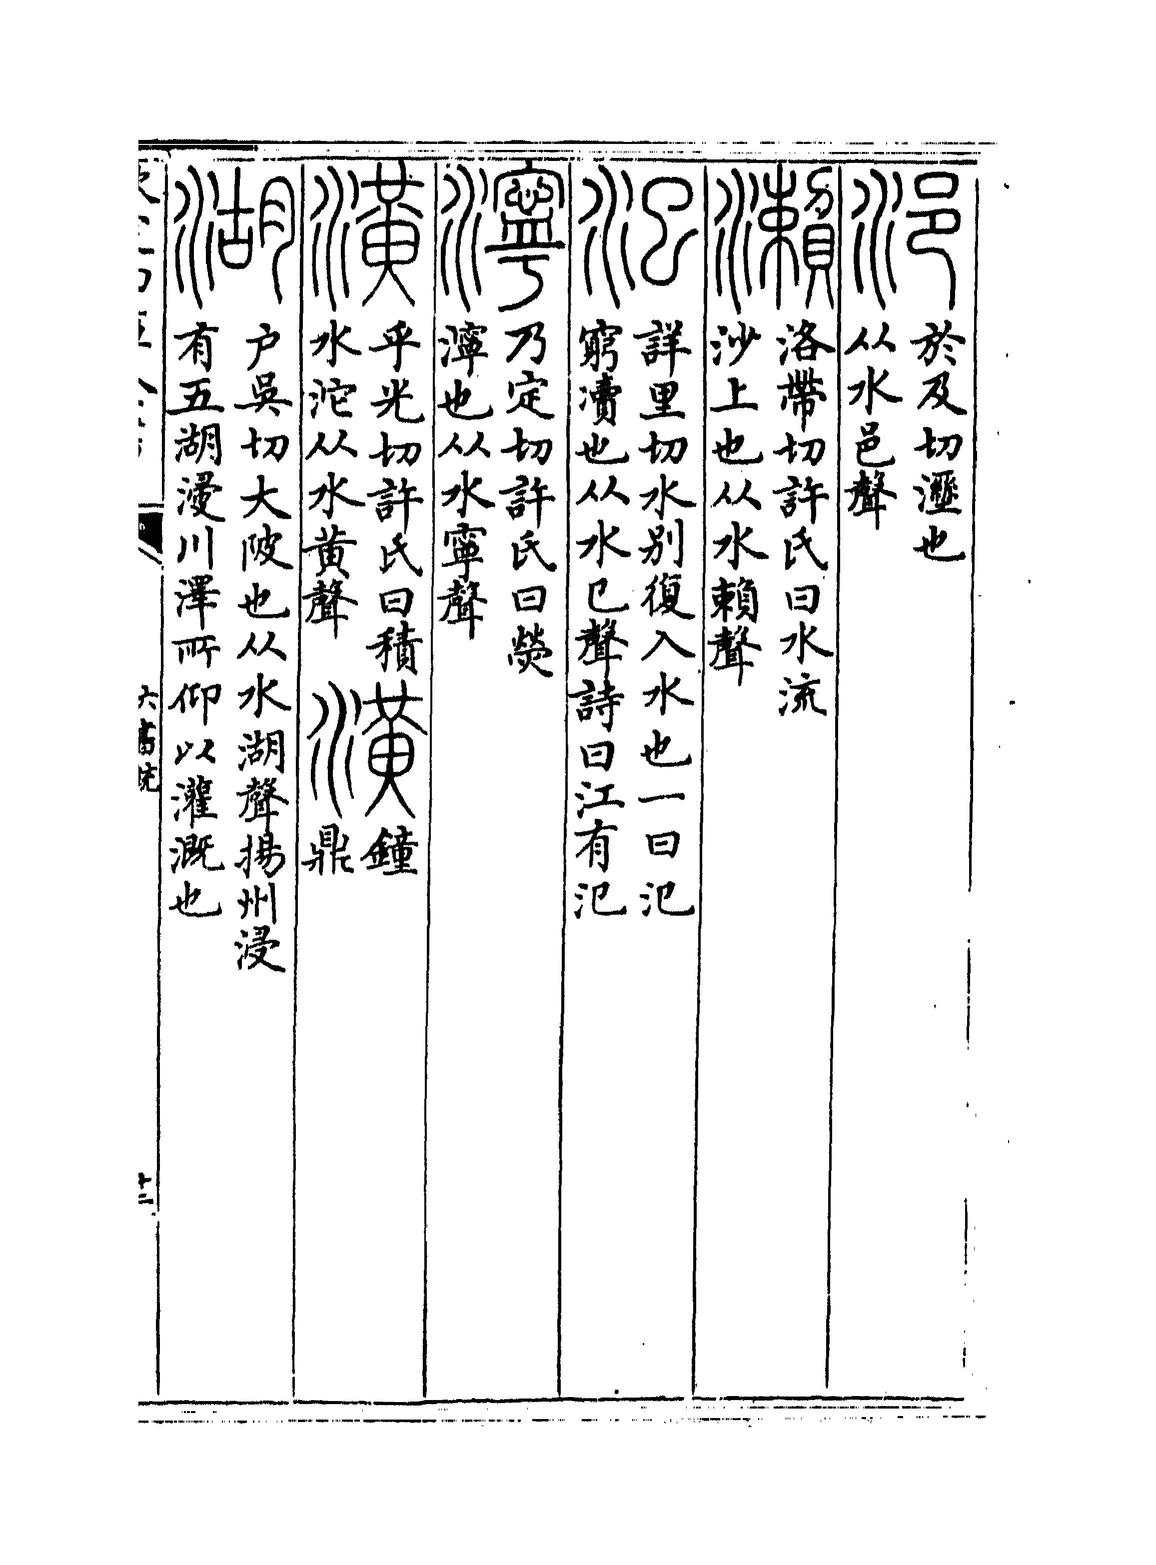 浥
於及切溼也
从水邑聲
瀨
洛帶切許氏曰水流
沙上也从水賴聲
汜
詳里切水别復入水也一曰汜
窮瀆也从水巳聲詩曰江有汜
濘
乃定切許氏曰滎
濘也从水寧聲
潢
乎光切許氏曰積
水沱从水黄聲
潢
鐘
鼎
湖
户吳切大陂也从水湖聲揚州浸
有五湖浸川澤所仰以灌溉也
六書統
十二